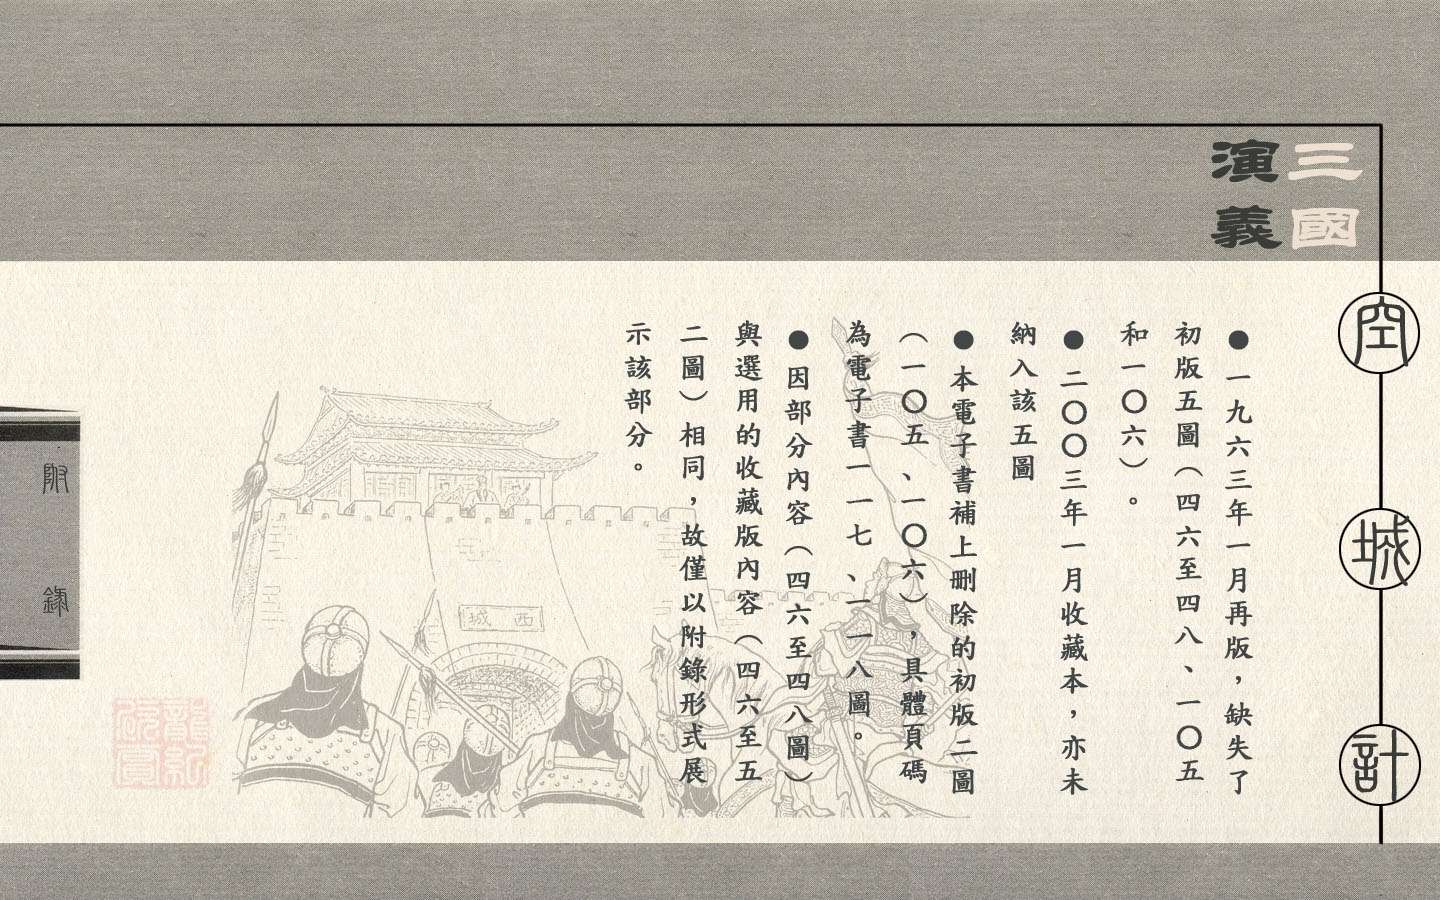 三國
演義
空城計
●一九六三年一月再版，缺失了
初版五圖（四六至四八、一〇五
和一〇六）。
●二〇〇三年一月收藏本，亦未
納入該五圖
●本電子書補上刪除的初版二圖
（一〇五、一〇六），具體頁碼
為電子書一一七、一一八圖。
●因部分內容（四六至四八圖）
與選用的收藏版內容（四六至五
二圖）相同，故僅以附錄形式展
示該部分。
西城
附錄